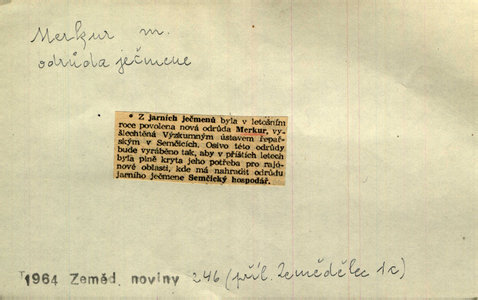 Merkur m.
odrůda ječmene
• Z jarních ječmenů byla v letošním
roce povolena nová odrůda Merkur, vy-
šlechtěná Výzkumným ústavem řepař-
ským v Semčicích. Osivo této odrůdy
bude vyráběno tak, aby v příštích letech
byla plně kryta jeho potřeba pro rajó-
nové oblasti, kde má nahradit odrůdu
jarního ječmene Semčický hospodář.
1964 Zeměd. noviny 246 (příl. Zemědělec 1c)